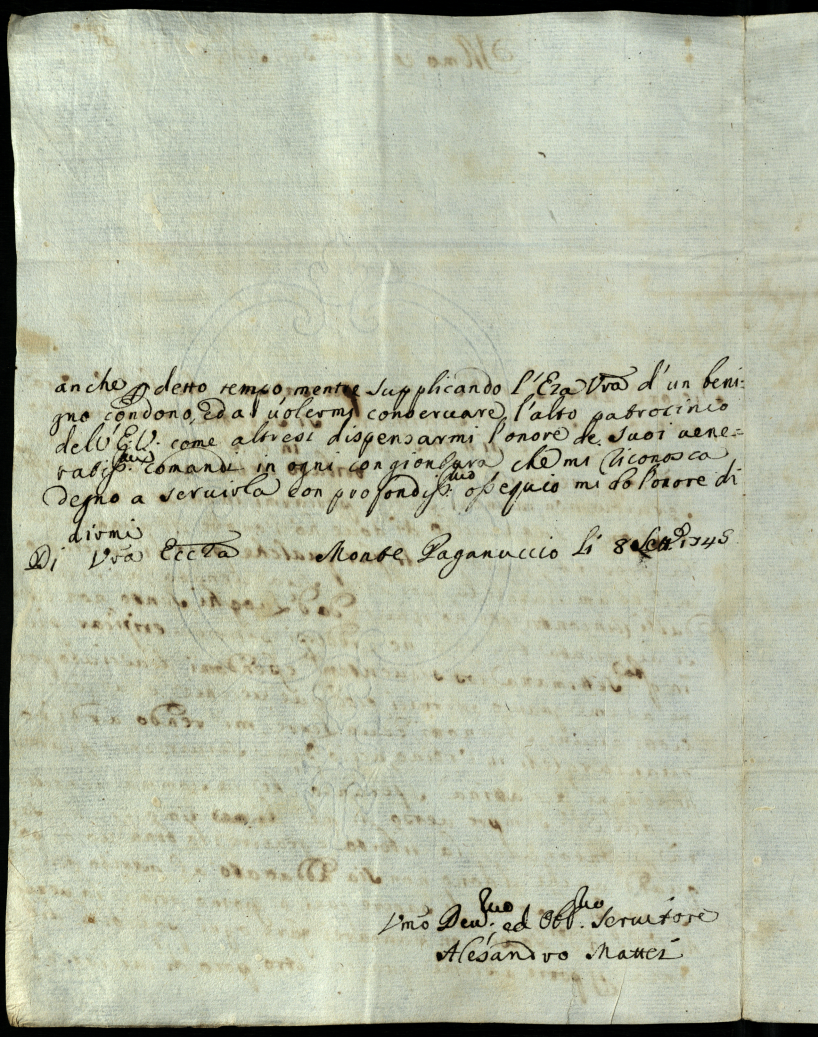 anche p detto tempo mentre supplicando l'Eza Vra d'un beni=
gno condono, ed a volermi conservare l'alto patrocinio
dell'E.V. come altresi dispensarmi l'onore de suoi vene=
rabiss.mi comandi in ogni congiontura che mi riconosca
degno a servirla con profondiss.mo ossequio mi do l'onore di
dirmi
Di Vra Eccza Monte Paganuccio li 8 Sett.e 1745
Vmo Dev.mo ed Obb.mo Servitore
Alesandro Mattei